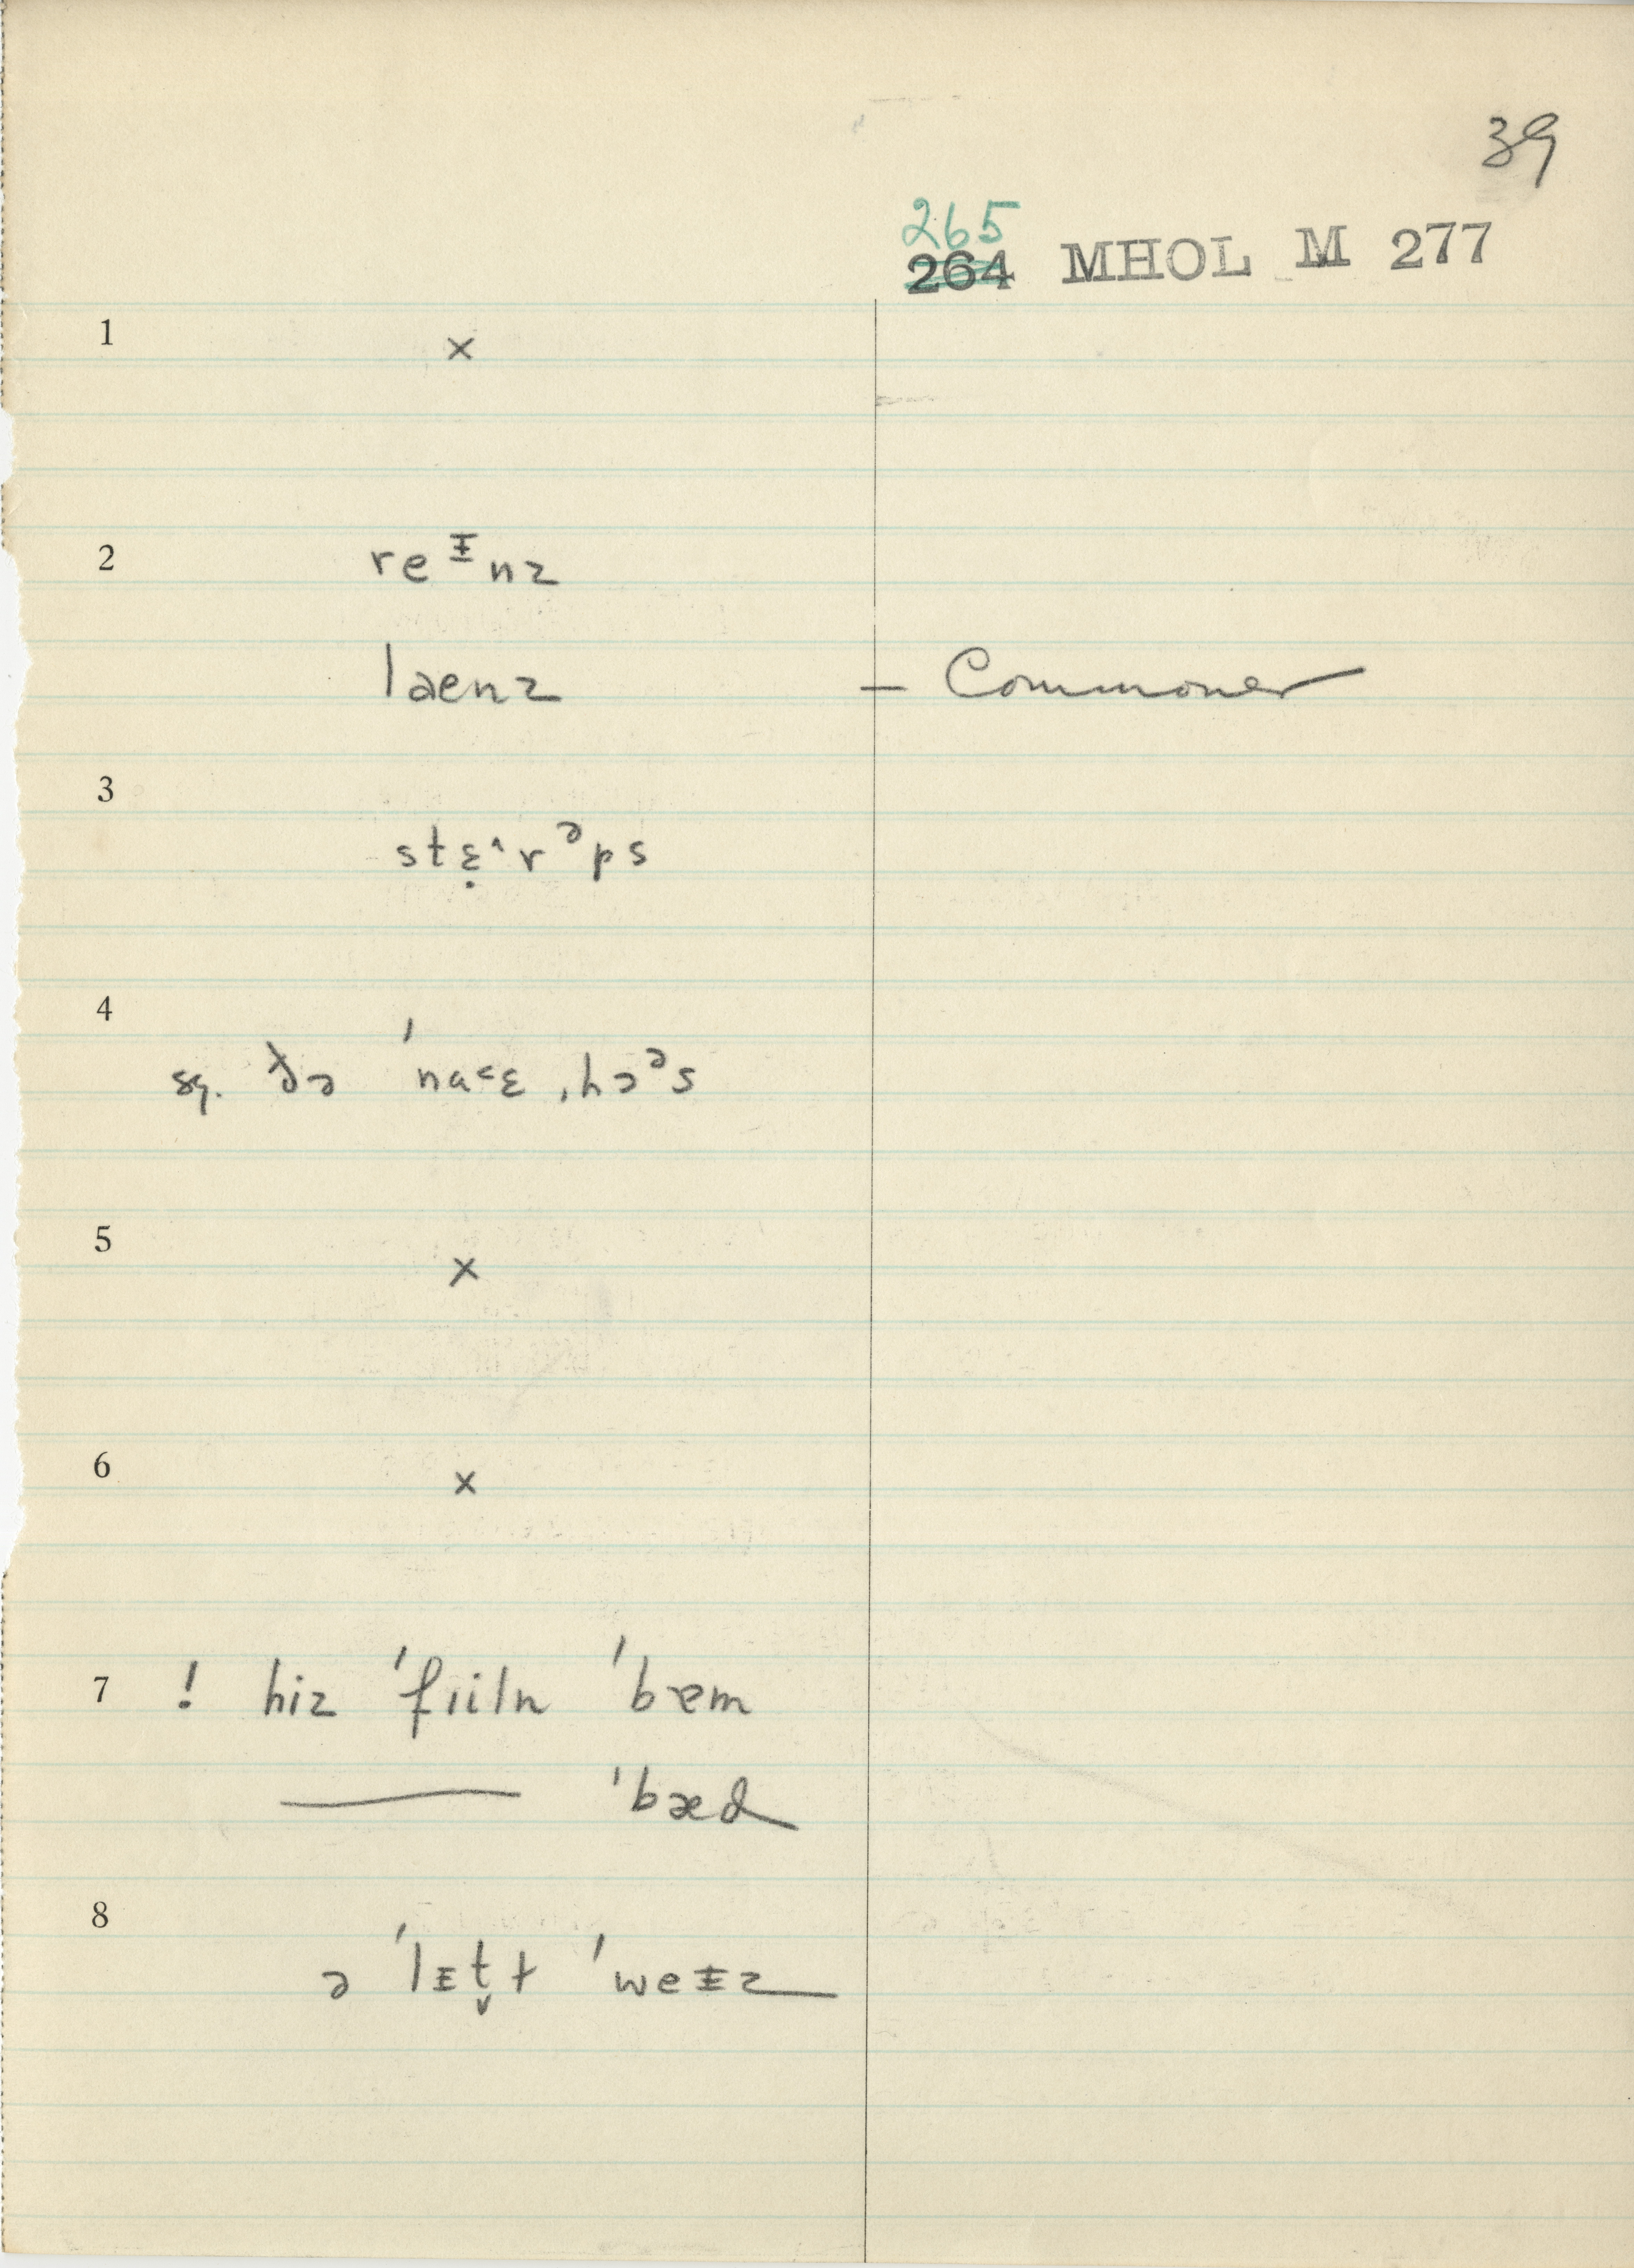 39
265
264 MHOL M 277
1 ×
2 reᵻnz
laenz – Commoner
3 stɛ̣˄rᵊps
4 sg. ðə ˈna˂ɛ ˌhɔᵊs
5 ×
6 ×
7 ! hiz ˈfɪiln ˈbɐm
—— ˈbæd
8 ə ˈlᵻt̬ɫ ˈweᵻz